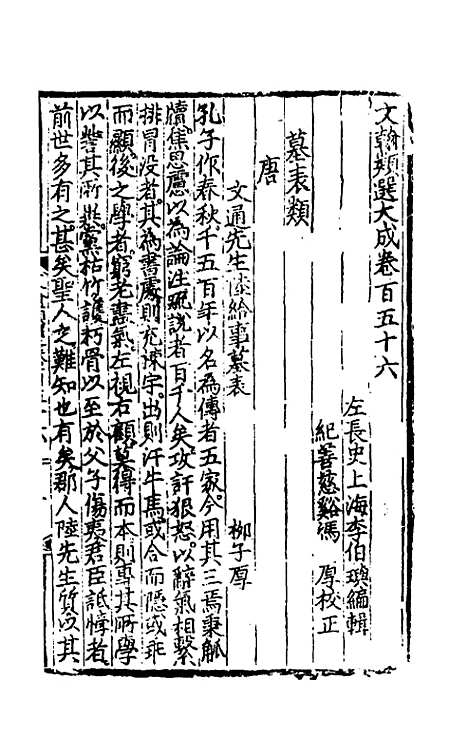 文翰類選大成卷百五十六
左長史上海李伯璵編輯
紀善慈谿馮 厚校正
墓表類
唐
文通先生陸給事墓表 栁子厚
孔子作春秋千五百年以名爲傳者五家今用其三焉秉觚
牘焦思慮以為論注䟽說者百千人矣攻訐狠怒以辭氣相繫
排冒没者其為書處則充棟宇出則汗牛馬或合而隱或乖
而顯後之學者窮老盡氣左視右顧莫得而本則專其所學
以訾其所異黨枯竹護朽骨以至於父子傷夷君臣詆悖者
前世多有之甚矣聖人之難知也有吳郡人陸先生質以其